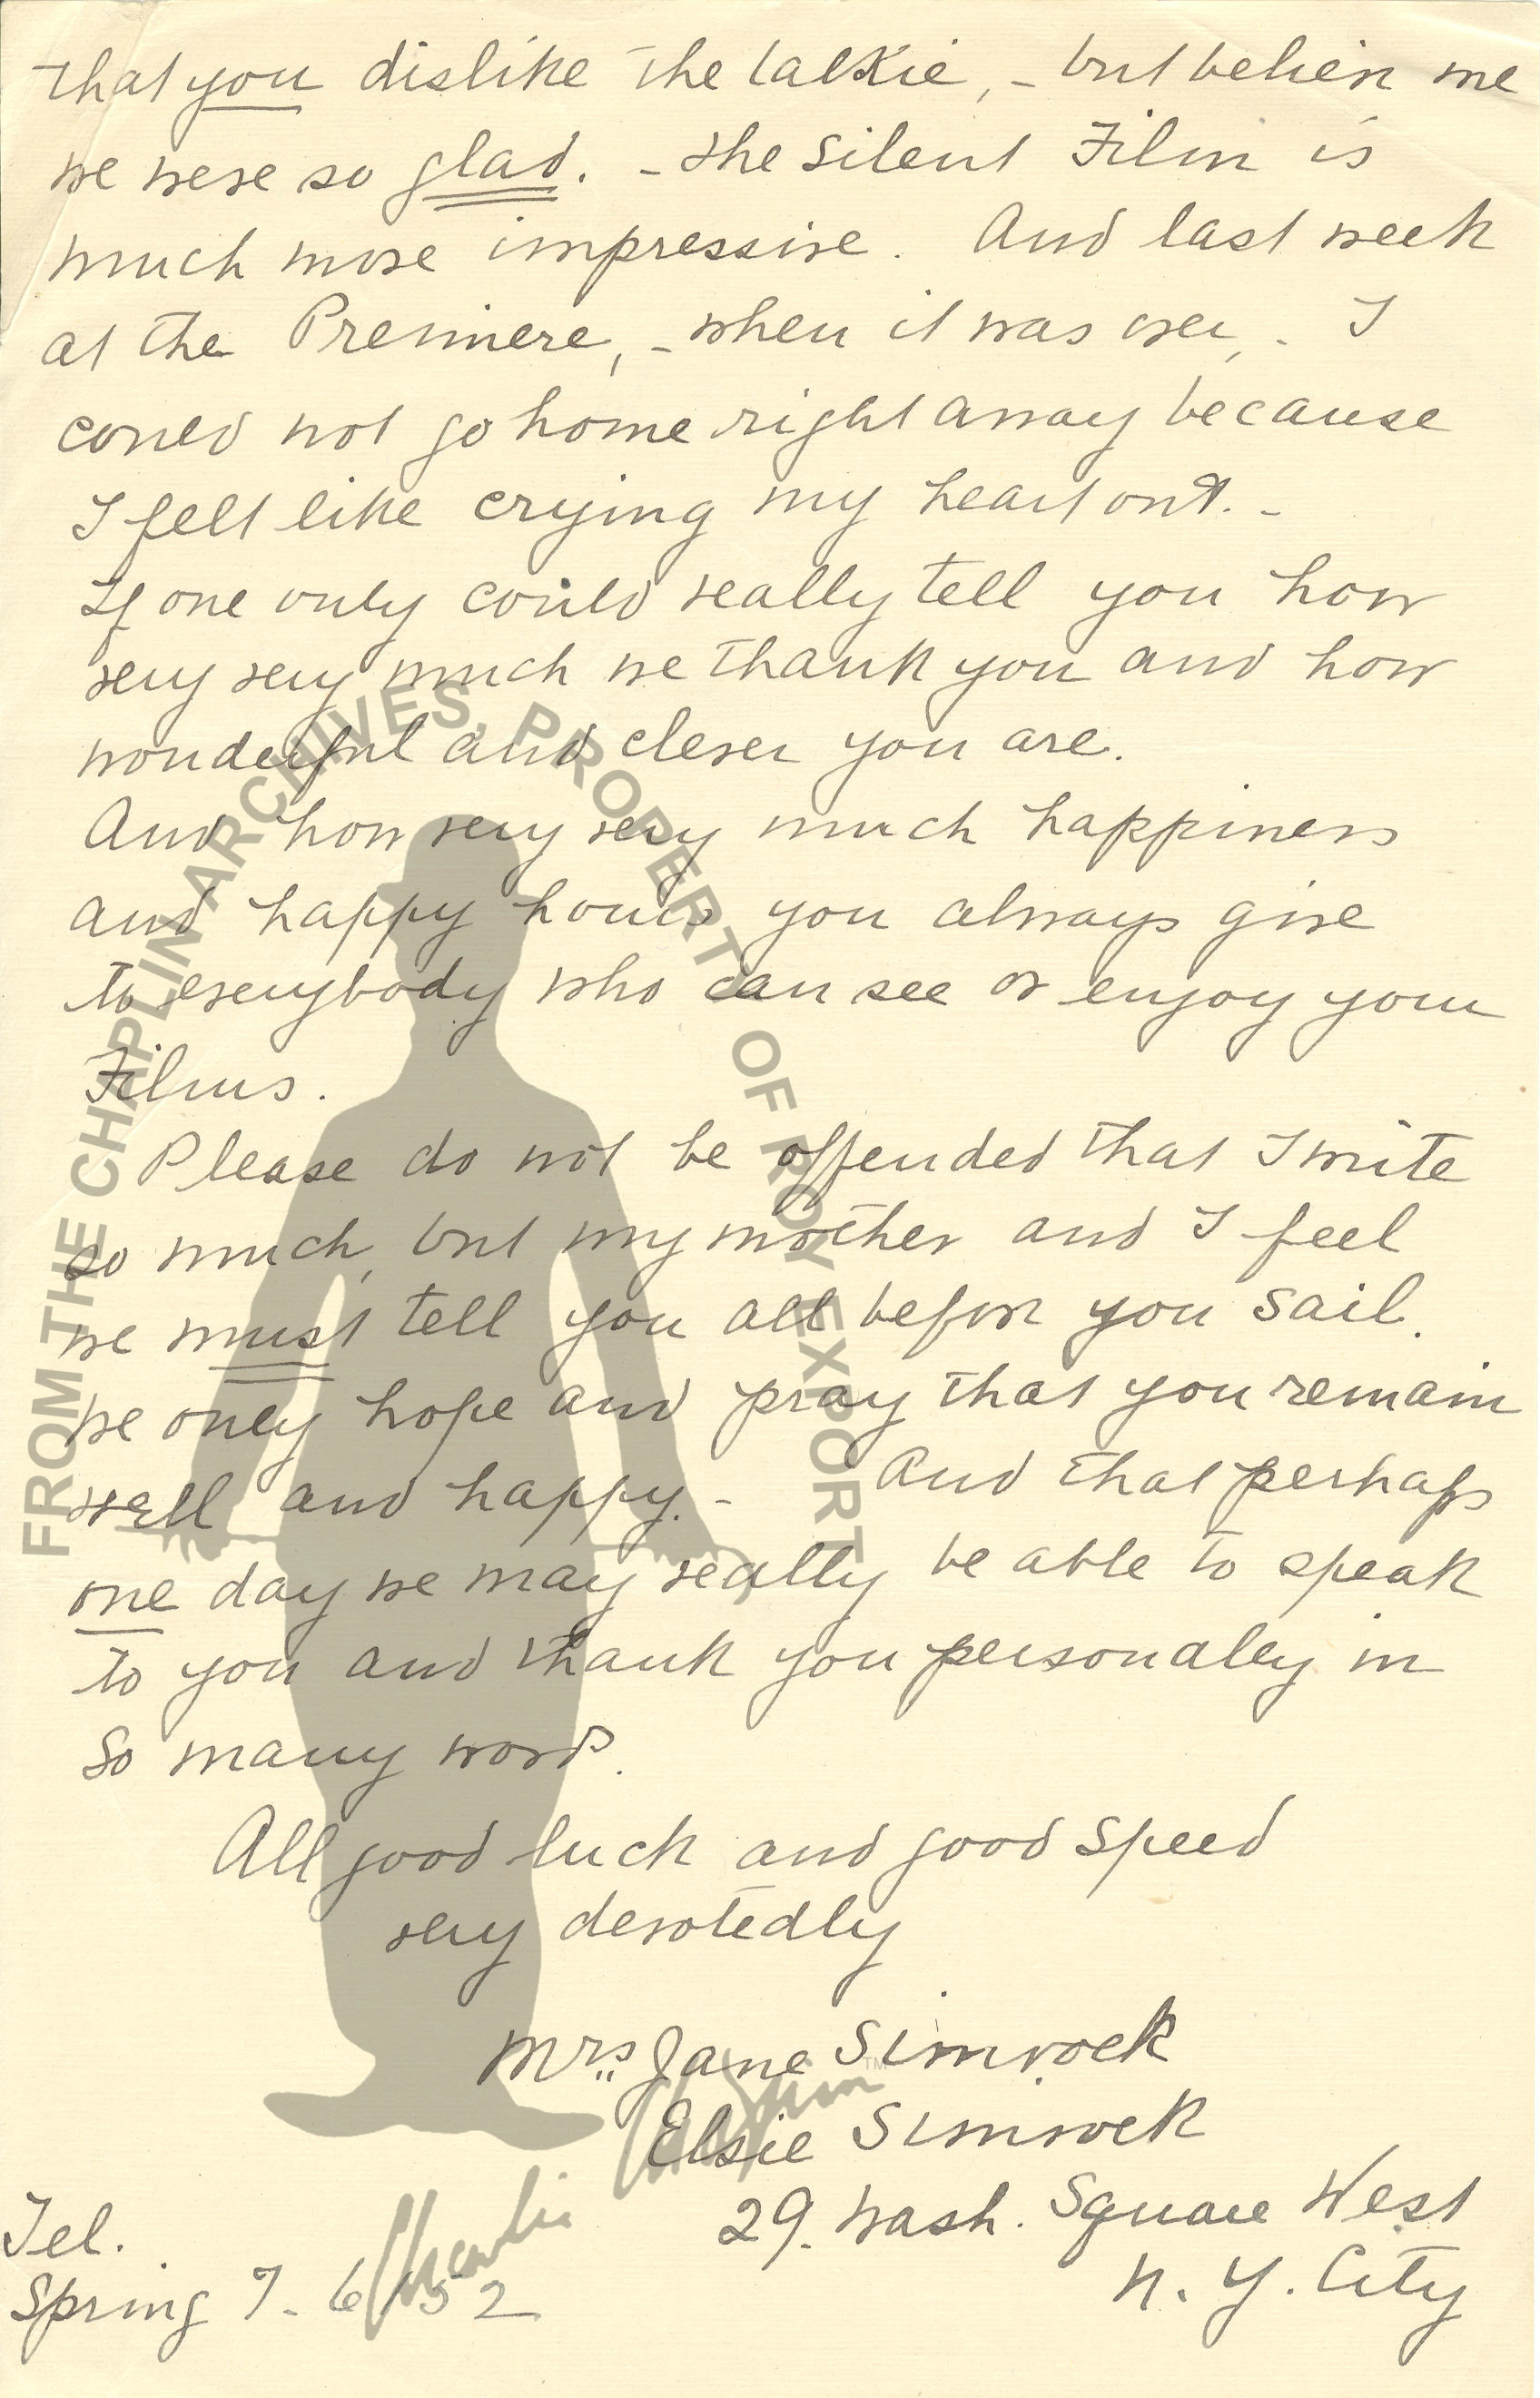 that you dislike the talkie, - but believe me
we were so glad. - the silent Film is
much more impressive. And last week
at the Premiere, - when it was over, - I
could not go home right away because
I felt like crying my heart out. -
If one only could really tell you how
very very much we thank you and how
wonderful and clever you are.
And how very very much happiness
and happy hours you always give
to everybody who can see or enjoy your
Films.
Please do not be offended that I write
so much, but my mother and I feel
we must tell you all before you sail.
We only hope and pray that you remain
well and happy. - And that perhaps
one day we may really be able to speak
to you and thank you personally in
so many words.
All good luck and good speed
very devotedly
Mrs. Jane Simrock
Elsie Simrock
29. Wash. Square West
N. Y. City
Tel.
Spring 7-6152
FROM THE CHAPLIN ARCHIVES, PROPERTY OF ROY EXPORT
Charlie Chaplin TM